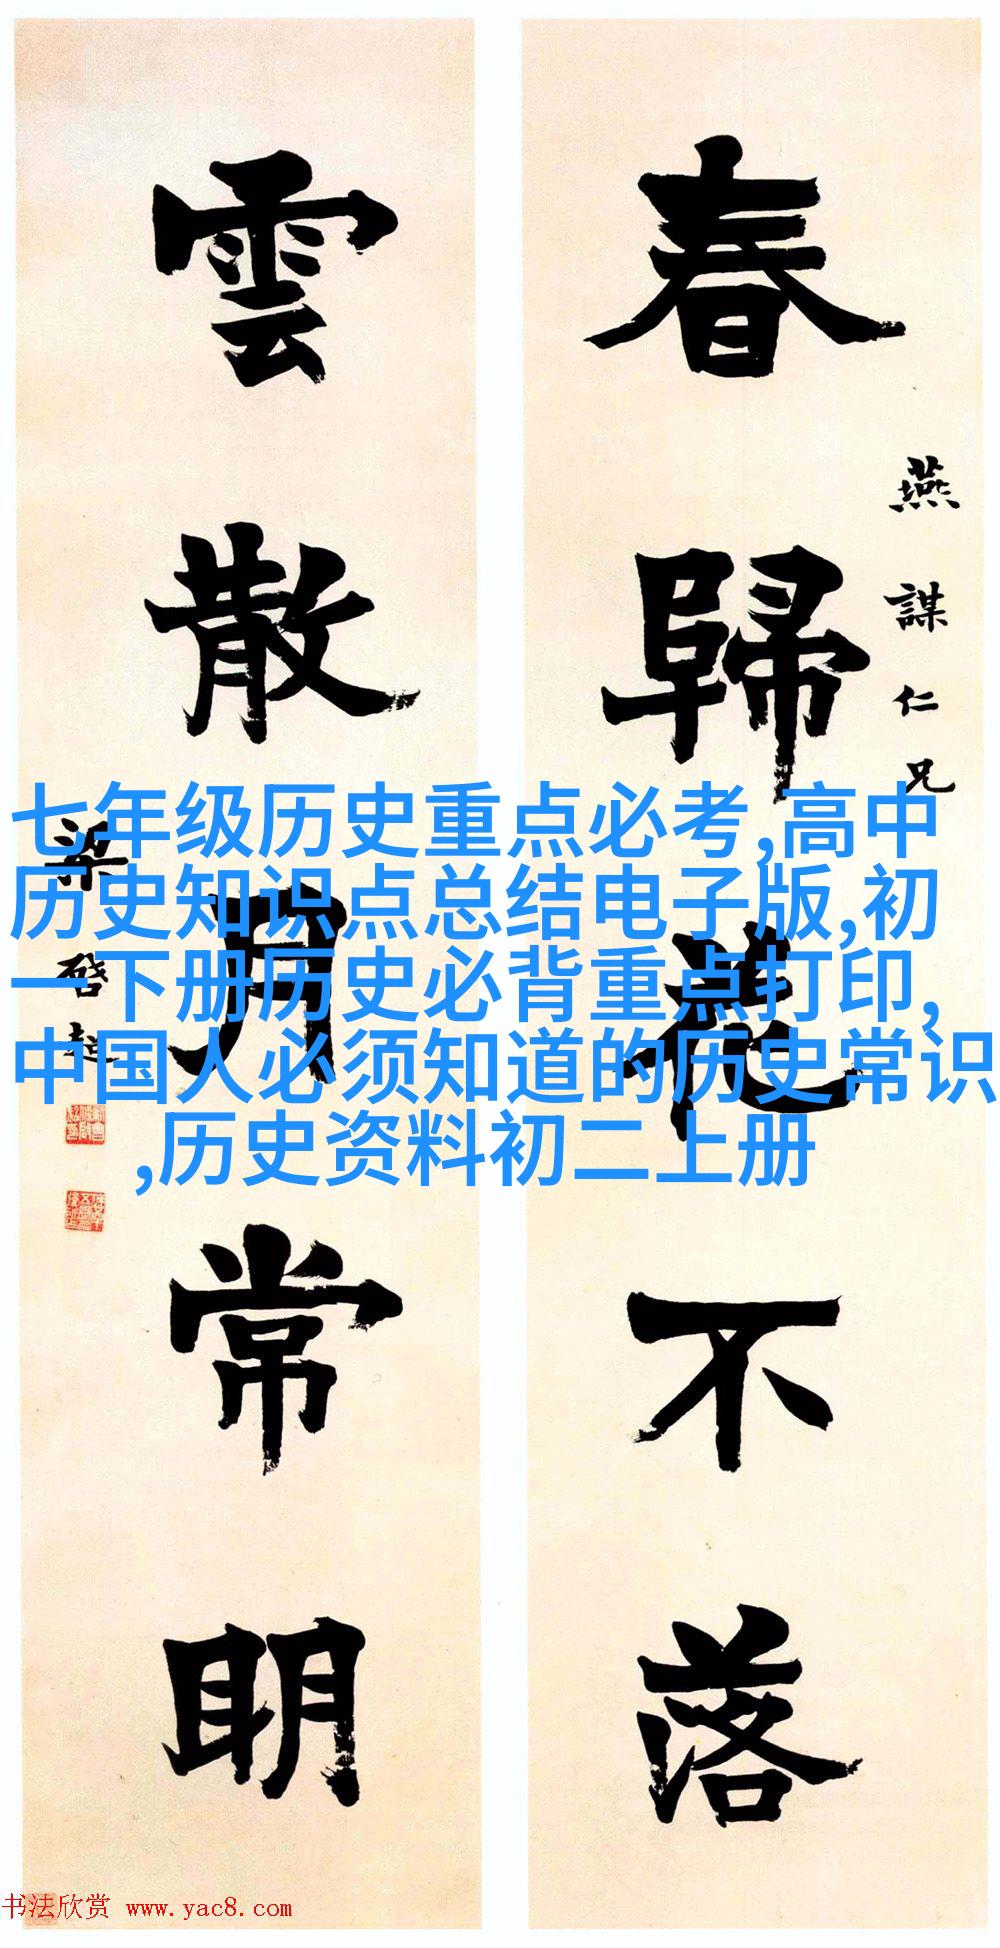 春歸花不落
燕謀仁兄
雲散月常明
梁啓超
七年级历史重点必考,高中
历史知识点总结电子版,初
一下册历史必背重点打印,
中国人必须知道的历史常识
,历史资料初二上册
书法欣赏 www.yac8.com